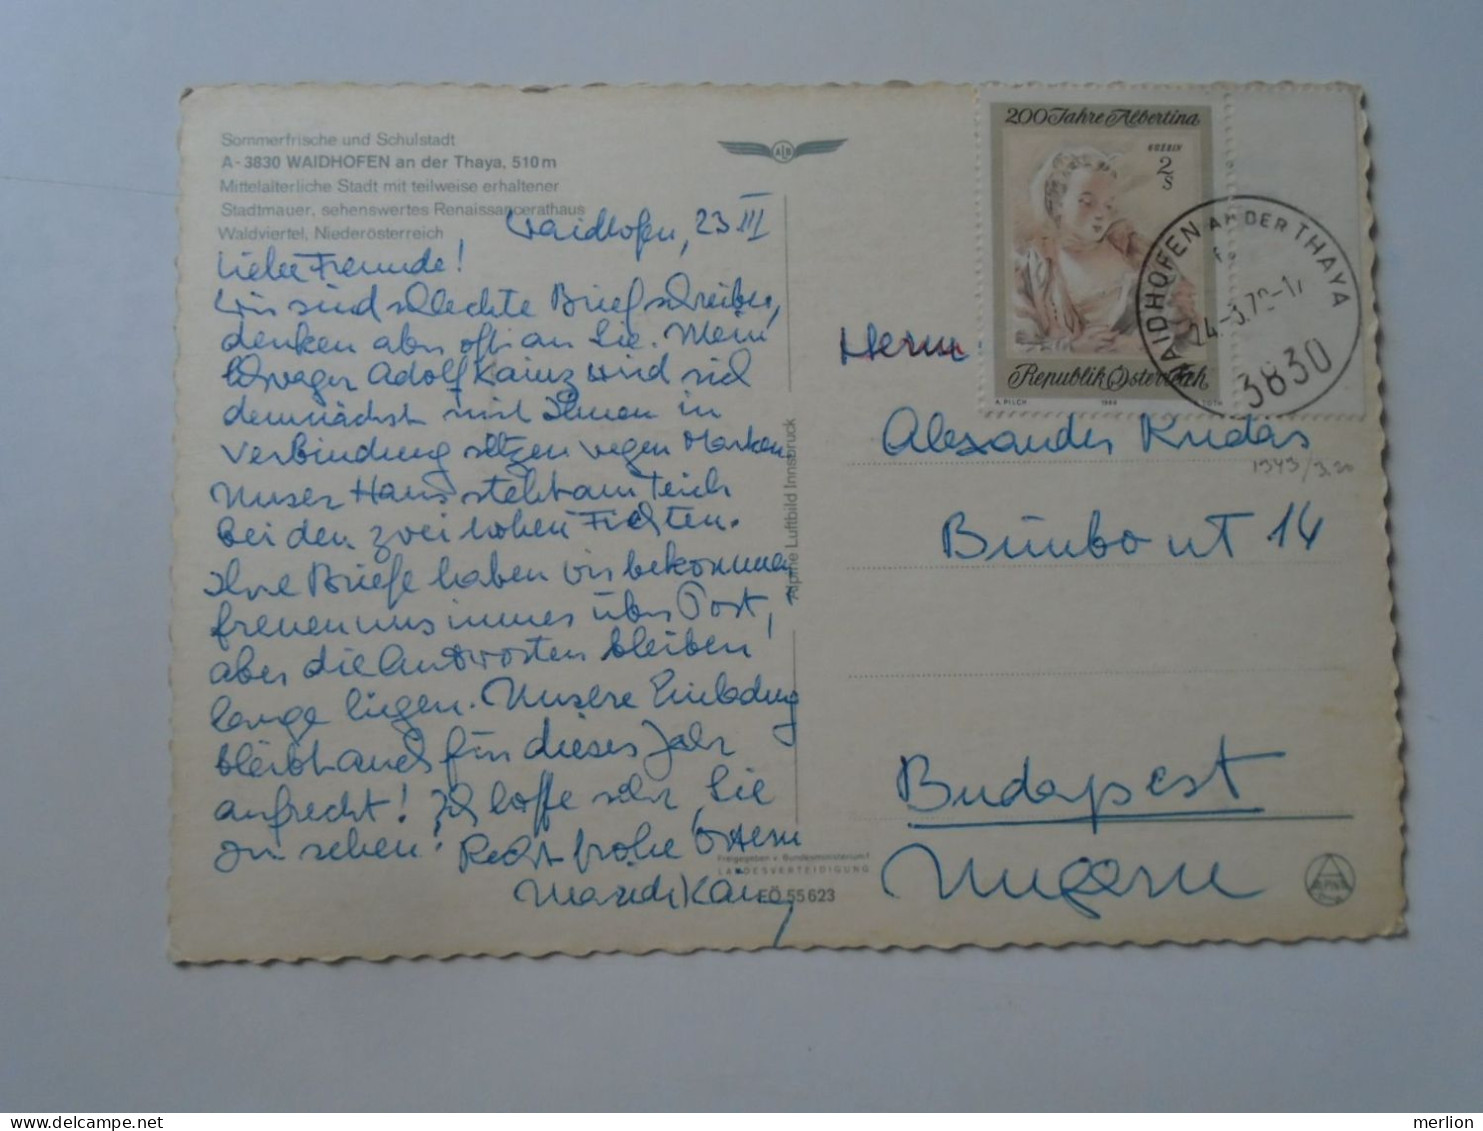 Sommerfrische und Schulstadt
A-3830 WAIDHOFEN an der Thaya, 510 m
Mittelalterliche Stadt mit teilweise erhaltener
Stadtmauer, sehenswertes Renaissancerathaus
Waldviertel, Niederösterreich
Waidhofen, 23 III
Liebe Freunde!
Wir sind schlechte Briefschreiber,
denken aber oft an Sie. Mein
Schwager Adolf Kainz wird sich
demnächst mit Ihnen in
Verbindung setzen wegen Marken
Unser Haus steht am Teich
bei den zwei hohen Fichten.
Ihre Briefe haben wir bekommen
freuen uns immer über Post,
aber die Antworten bleiben
lange liegen. Unsere Einladung
bleibt auch für dieses Jahr
aufrecht! Ich hoffe sehr Sie
zu sehen! Recht frohe Ostern
Alpine Luftbild Innsbruck
Freigegeben v. Bundesministerium f.
LANDESVERTEIDIGUNG
EÖ 55623
200 Jahre Albertina
GUÉRIN
2 S
Republik Österreich
A. PILCH 1969 TOTH
WAIDHOFEN AN DER THAYA
3830
Herrn
Alexander Kudas
1343/3.20
Bimbo ut 14
Budapest
Ungarn